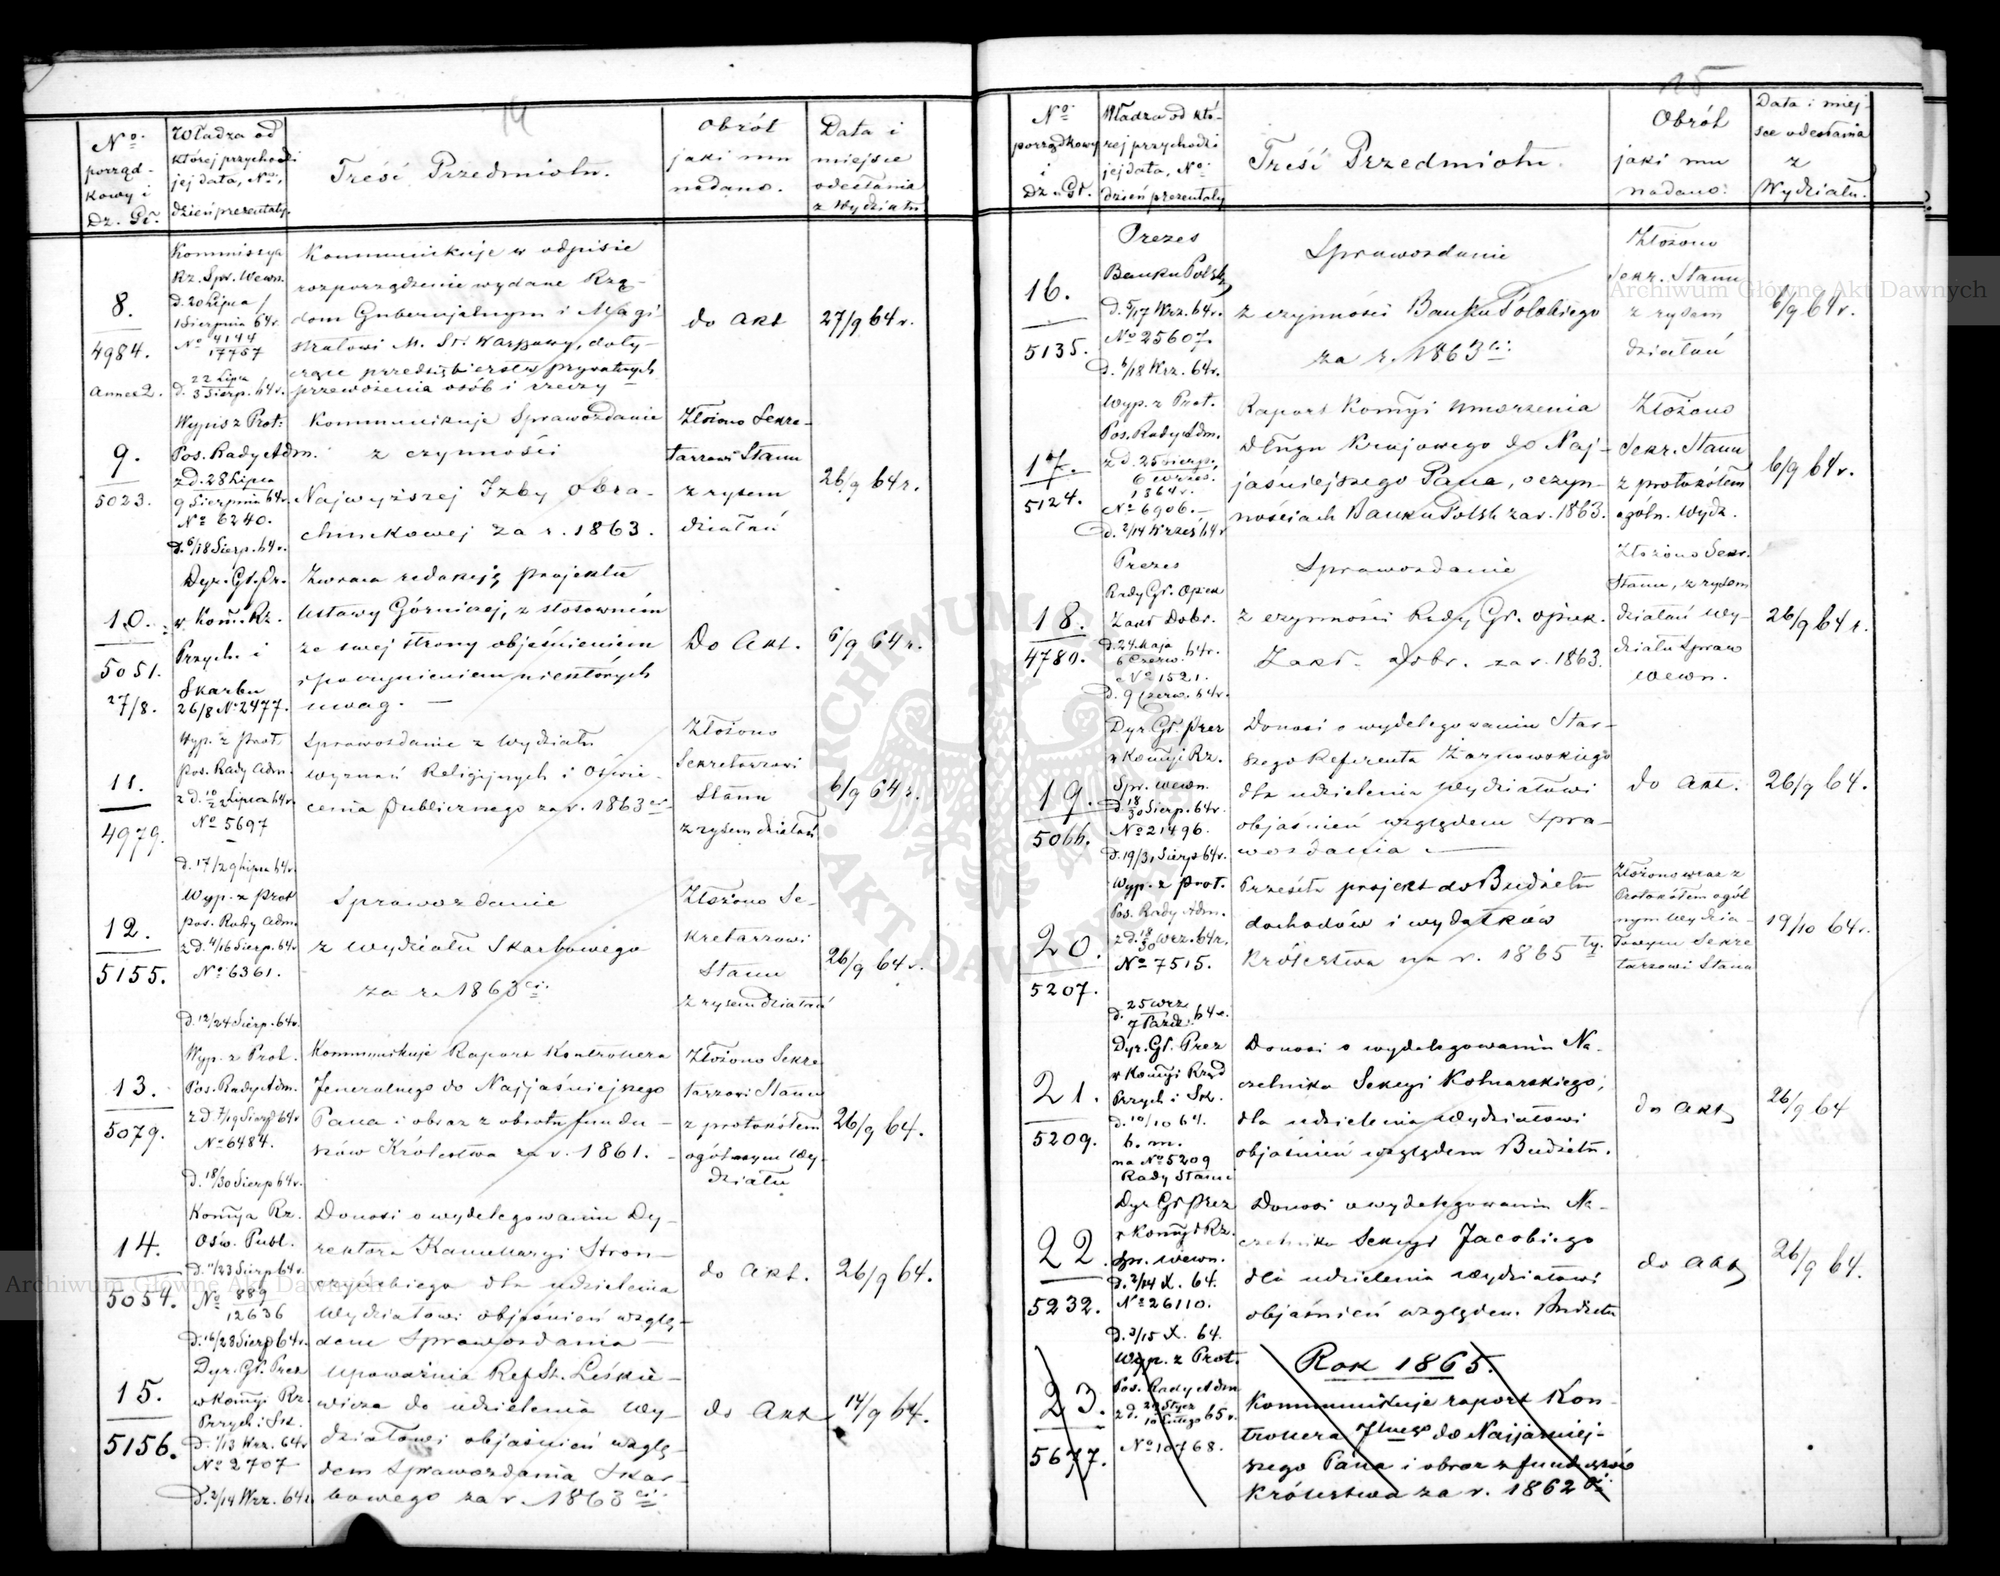 14
No.
porząd-
kowy i
Dz. Gł.
Władza od
której przychodzi
jej data, No.,
dzień prezentaty.
Treść Przedmiotu.
Obrót
jaki mu
nadano.
Data i
miejsce
odesłania
z Wydziału
8.
4984.
Annex 2.
Kommissya
Rz. Spr. Wewn.
d. 20 Lipca /
1 Sierpnia 64 r.
No 4144
17757
d. 22 Lipca
3 Sierp. 64 r.
Kommunikuje w odpisie
rozporządzenie wydane Rzą-
dom Gubernjalnym i Magi
stratowi M. St. Warszawy, doty-
czące przedsiębierstw prywatnych
przewożenia osób i rzeczy
do Akt
27/9 64 r.
9.
5023.
Wypis z Prot:
Pos. Rady Adm.
z d. 28 Lipca
9 Sierpnia 64 r.
No 6240.
d. 6/18 Sierp. 64 r.
Kommunikuje Sprawozdanie
z czynności
Najwyższej Izby Obra-
chunkowej za r. 1863.
Złożono Sekre-
tarzowi Stanu
z rysem
działań
26/9 64 r.
10.
5051.
27/8.
Dyr. Gł. Pr.
w Kom. Rz.
Przych. i
Skarbu
26/8 No 2477.
Zwraca redakcją projektu
Ustawy Górniczej, z stosownem
ze swej strony objaśnieniem
i poczynieniem niektórych
uwag. —
Do Akt.
6/9 64 r.
11.
4979.
Wyp. z Prot
pos. Rady Adm.
z d. 10/22 Lipca 64 r.
No 5697
d. 17/29 Lipca 64 r.
Sprawozdanie z Wydziału
Wyznań Religijnych i Oświe-
cenia publicznego za r. 1863
Złożono
Sekretarzowi
Stanu
z rysem działań
6/9 64 r.
12.
5155.
Wyp. z Prot
pos. Rady Adm.
z d. 4/16 Sierp. 64 r.
No 6361.
d. 12/24 Sierp. 64 r.
Sprawozdanie
z Wydziału Skarbowego
za r. 1863
Złożono Se-
kretarzowi
Stanu
z rysem działań
26/9 64 r.
13.
5079.
Wyp. z Prot.
Pos. Rady Adm.
z d. 7/19 Sierp 64 r
No 6484.
d. 18/30 Sierp 64 r.
Kommunikuje Raport Kontrollera
Jeneralnego do Najjaśniejszego
Pana i obraz z obrotu fundu-
szów Królestwa za r. 1861.
Złożono Sekre
tarzowi Stanu
z protokółem
ogólnym Wy-
działu
26/9 64.
14.
5054.
Kom̃ya Rz.
Ośw. Publ.
d. 11/23 Sierp 64 r.
No 889
12636
d. 16/28 Sierp 64 r.
Donosi o wydelegowaniu Dy-
rektora Kancellaryi Stron-
czyńskiego dla udzielenia
Wydziałowi objaśnień wzglę-
dem Sprawozdania
do Akt.
26/9 64.
15.
5156.
Dyr. Gł. Prez
w Kom̃yi Rz.
Przych i Sk.
d. 1/13 Wrz. 64 r
No 2707
d. 2/14 Wrz. 64 r
Upoważnia Ref. St. Leśkie-
wicza do udzielenia Wy-
działowi objaśnień wzglę-
dem Sprawozdania Skar-
bowego za r. 1863
do Akt
14/9 64.
15
No.
porządkowy
i
Dz. Gł.
Władza od któ-
rej przychodzi
jej data, No.
dzień prezentaty
Treść Przedmiotu.
Obrót
jaki mu
nadano.
Data i miej-
sce odesłania
z
Wydziału.
16.
5135.
Prezes
Banku Polsk.
d. 5/17 Wrz. 64 r.
No 25607.
d. 6/18 Wrz. 64 r.
Sprawozdanie
z czynności Banku Polskiego
za r. 1863
Złożono
Sekr. Stanu
z rysem
działań
6/9 64 r.
17.
5124.
Wyp. z Prot.
Pos. Rady Adm.
z d. 25 Sierp.
6 Wrześ.
1864 r.
No 6906. —
d. 2/14 Wrześ 64 r
Raport Kom̃yi Umorzenia
Długu Krajowego do Naj-
jaśniejszego Pana, o czyn-
nościach Banku Polsk za r. 1863.
Złożono
Sekr. Stanu
z protokółem
ogóln. Wydz.
6/9 64 r.
18.
4780.
Prezes
Rady Gł. Opiek
Zakł Dobr.
d. 24 Maja
6 Czerw. 64 r.
No 1521.
d. 9 Czerw. 64 r.
Sprawozdanie
z czynności Rady Gł. Opiek.
Zakł. dobr. za r. 1863.
Złożono Sekr.
Stanu, z rysem
działań Wy-
działu Spraw
Wewn.
26/9 64 r.
19.
5066.
Dyr Gł. Prez
w Kom̃yi Rz.
Spr. Wewn.
d. 18/30 Sierp. 64 r.
No 21496.
d. 19/31 Sierp 64 r.
Donosi o wydelegowaniu Star-
szego Referenta Żarnowskiego
dla udzielenia Wydziałowi
objaśnień względem Spra-
wozdania —
do Akt.
26/9 64.
20.
5207.
Wyp. z Prot.
Pos. Rady Adm.
z d. 18/30 Wrz. 64 r.
No 7515.
d. 25 Wrz
7 Paźd. 64 r.
Przesyła projekt do Budżetu
dochodów i wydatków
Królestwa na r. 1865 ty.
Złożono wraz z
Protokółem ogól
nym Wydzia-
łowym Sekre
tarzowi Stanu
19/10 64 r.
21.
5209.
Dyr. Gł. Prez
w Kom̃yi Rząd
Przych i Sk.
d. 10/10 64.
b. m.
na No 5209
Rady Stanu
Donosi o wydelegowaniu Na-
czelnika Sekcyi Kotnarskiego,
dla udzielenia Wydziałowi
objaśnień względem Budżetu.
do Akt
26/9 64
22.
5232.
Dyr Gł Prez
w Kom̃yi Rz.
Sp. Wewn.
d. 2/14 X. 64.
No 26110.
d. 3/15 X. 64.
Donosi o wydelegowaniu Na-
czelnika Sekcyi Jacobiego
dla udzielenia Wydziałowi
objaśnień względem Budżetu
do Akt
26/9 64.
Rok 1865.
23.
5677.
Wyp. z Prot.
Pos. Rady Adm
z d. 29 Stycz
10 Lutego 65 r.
No 10768.
Kommunikuje raport Kon-
trollera Jlnego do Najjaśniej-
szego Pana i obraz z funduszów
Królestwa za r. 1862
ARCHIWUM
AKT DAWNYCH
Archiwum Główne Akt Dawnych
Archiwum Główne Akt Dawnych